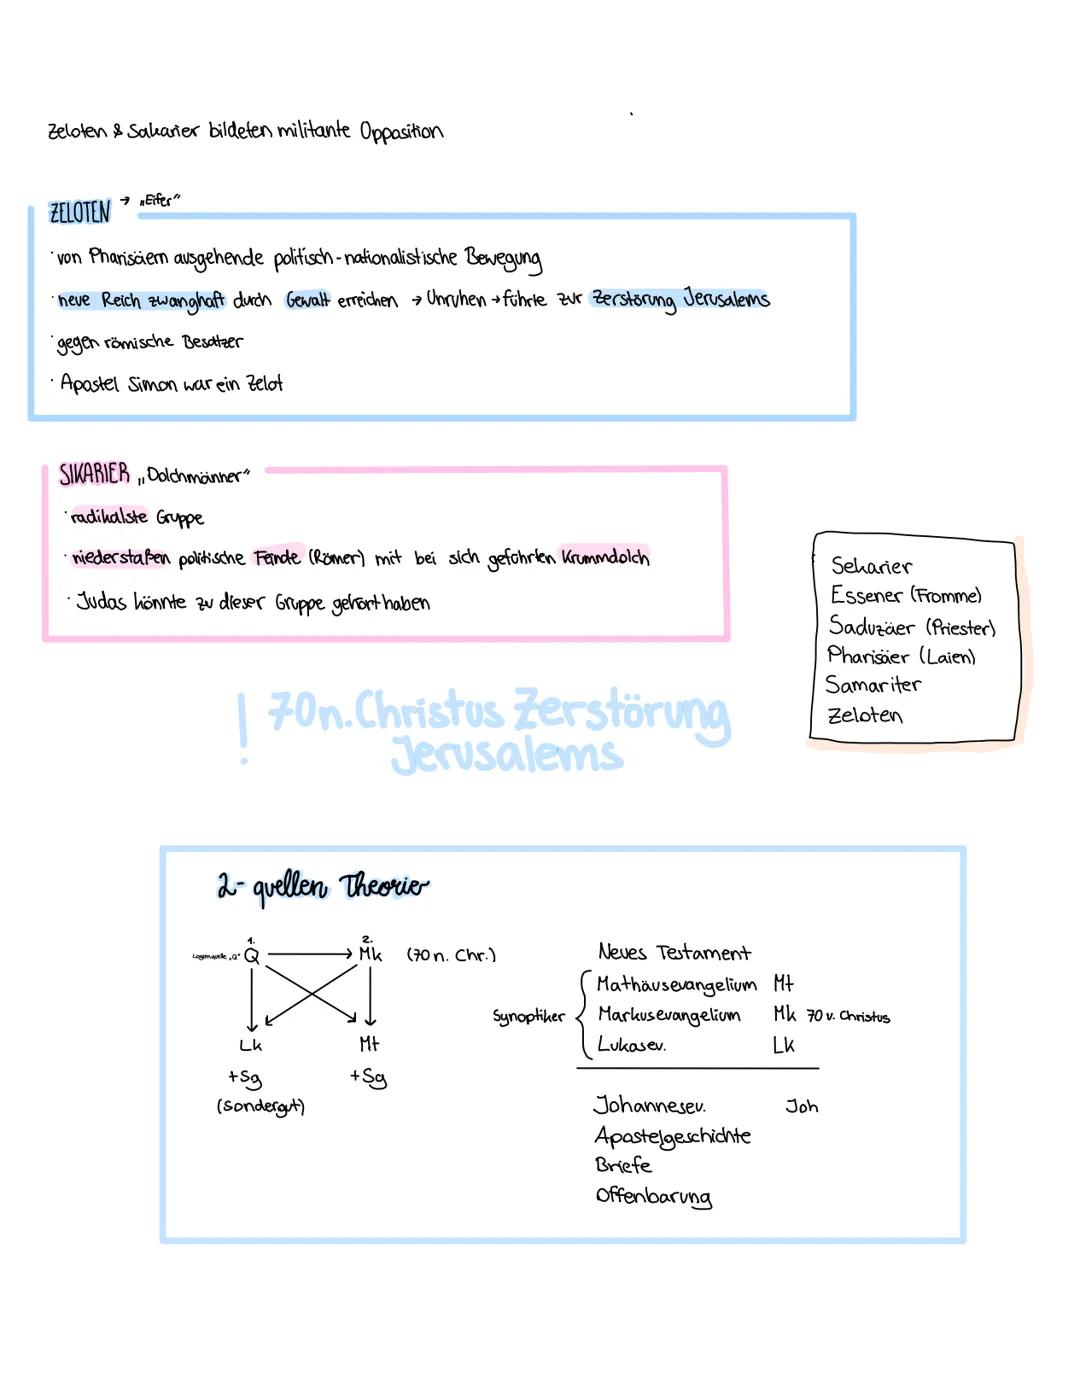 Zeloten & Sakarier bildeten militante Opposition
ZELOTEN → „Eifer"
· von Pharisäern ausgehende politisch-nationalistische Bewegung
· neue Reich zwanghaft durch Gewalt erreichen → Unruhen → führte zur Zerstörung Jerusalems
· gegen römische Besatzer
· Apostel Simon war ein Zelot
SIKARIER „Dolchmänner"
· radikalste Gruppe
· niederstaßen politische Feinde (Römer) mit bei sich geführten Krummdolch
· Judas könnte zu dieser Gruppe gehört haben
Sekarier
Essener (Fromme)
Saduzäer (Priester)
Pharisäer (Laien)
Samariter
Zeloten
! 70 n. Christus Zerstörung
Jerusalems
2-quellen Theorie
1. 2.
Logienquelle „Q" Q → Mk (70 n. Chr.)
Lk Mt
+Sg +Sg
(Sondergut)
Neues Testament
Mathäusevangelium Mt
Synoptiker { Markusevangelium Mk 70 v. Christus
Lukasev. Lk
Johannesev. Joh
Apostelgeschichte
Briefe
Offenbarung